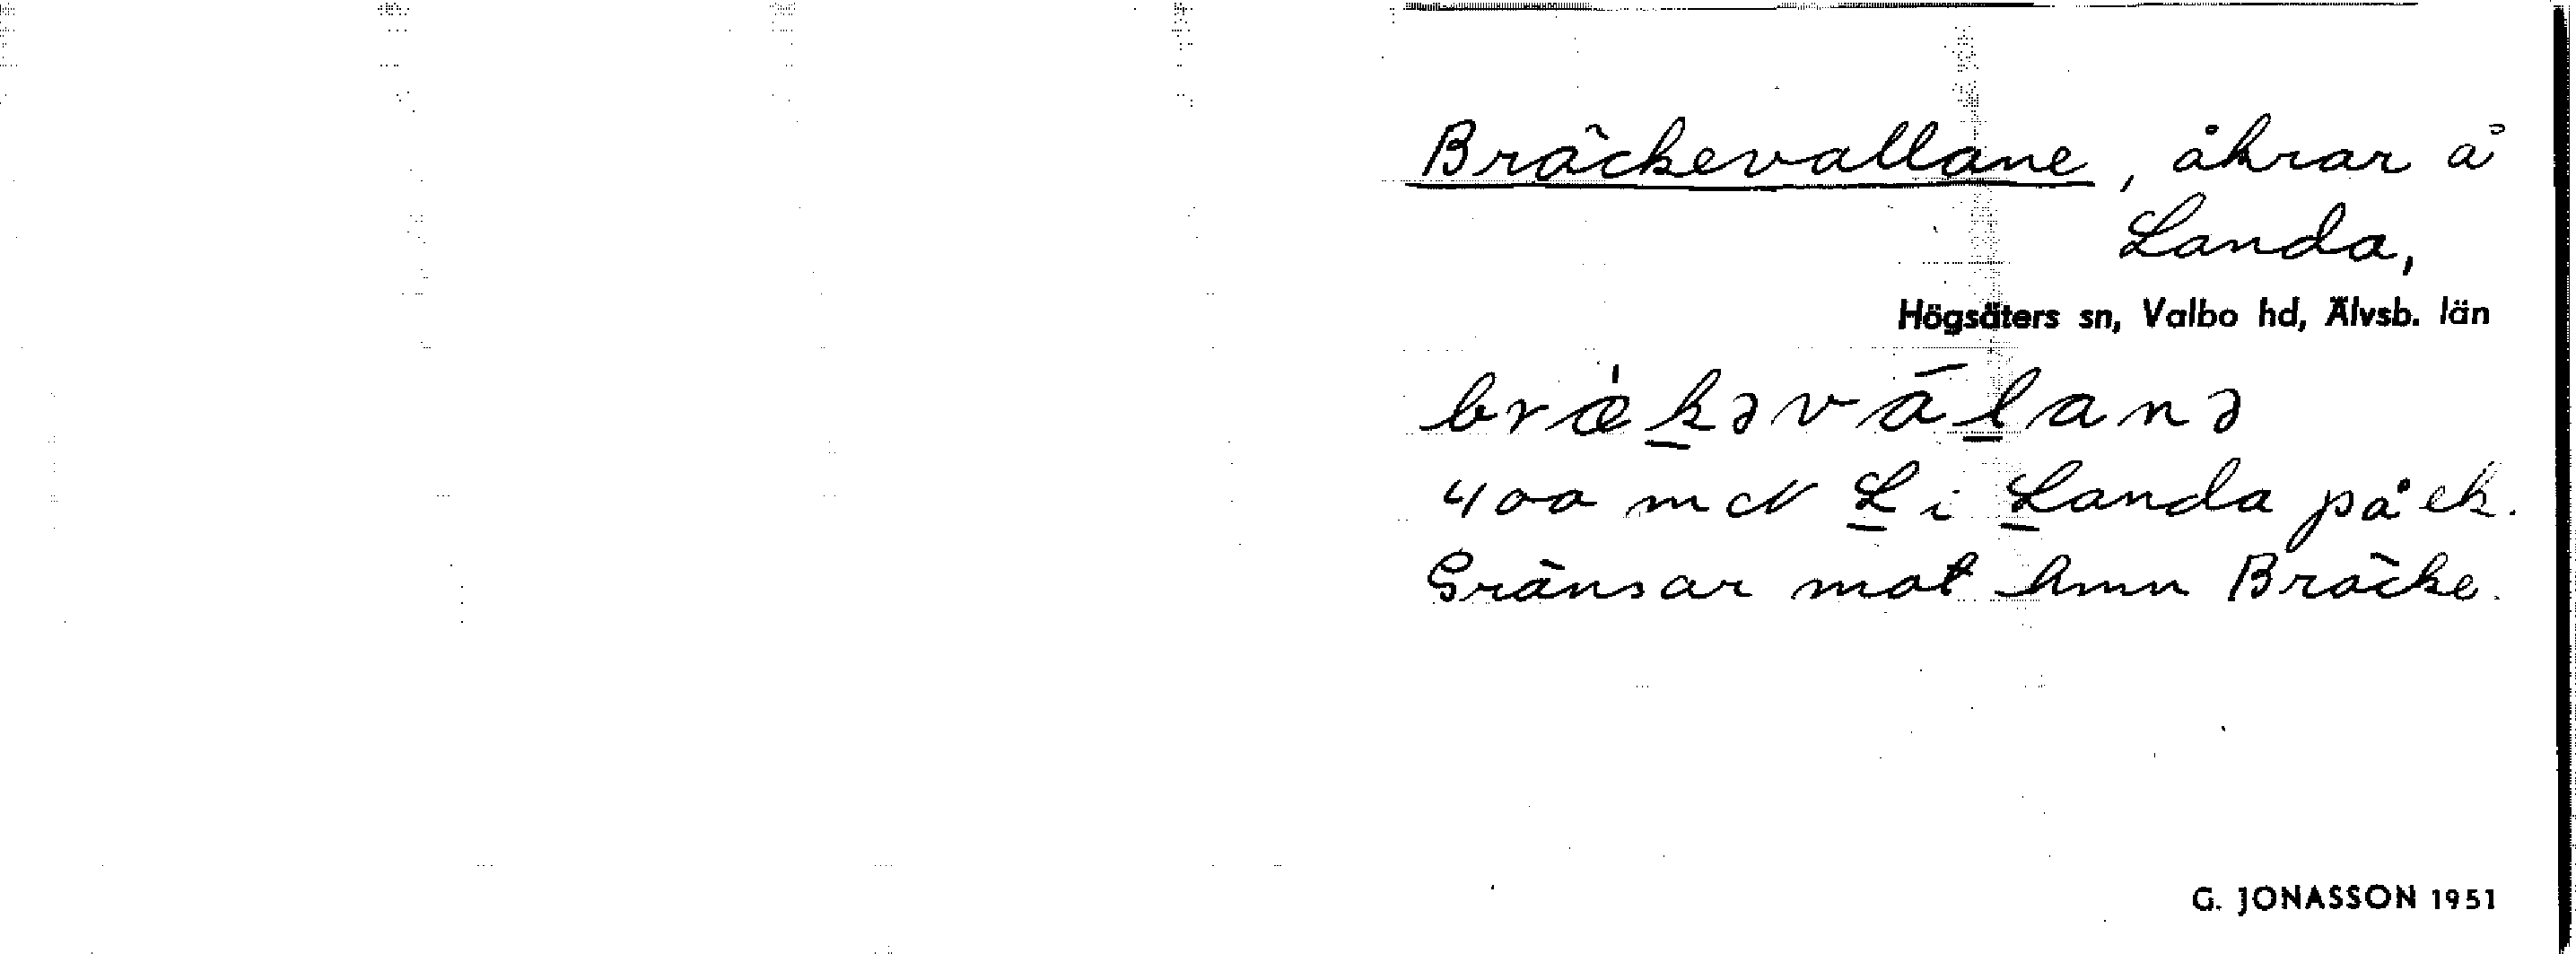 Bräckevallane, åkrar å
Landa,
Högsäters sn, Valbo hd, Älvsb. län
bræ̀k̲əvāl̲anə
400 m N L̲ i L̲anda på ek.
Gränsar mot hmn Bräcke.
G. JONASSON 1951